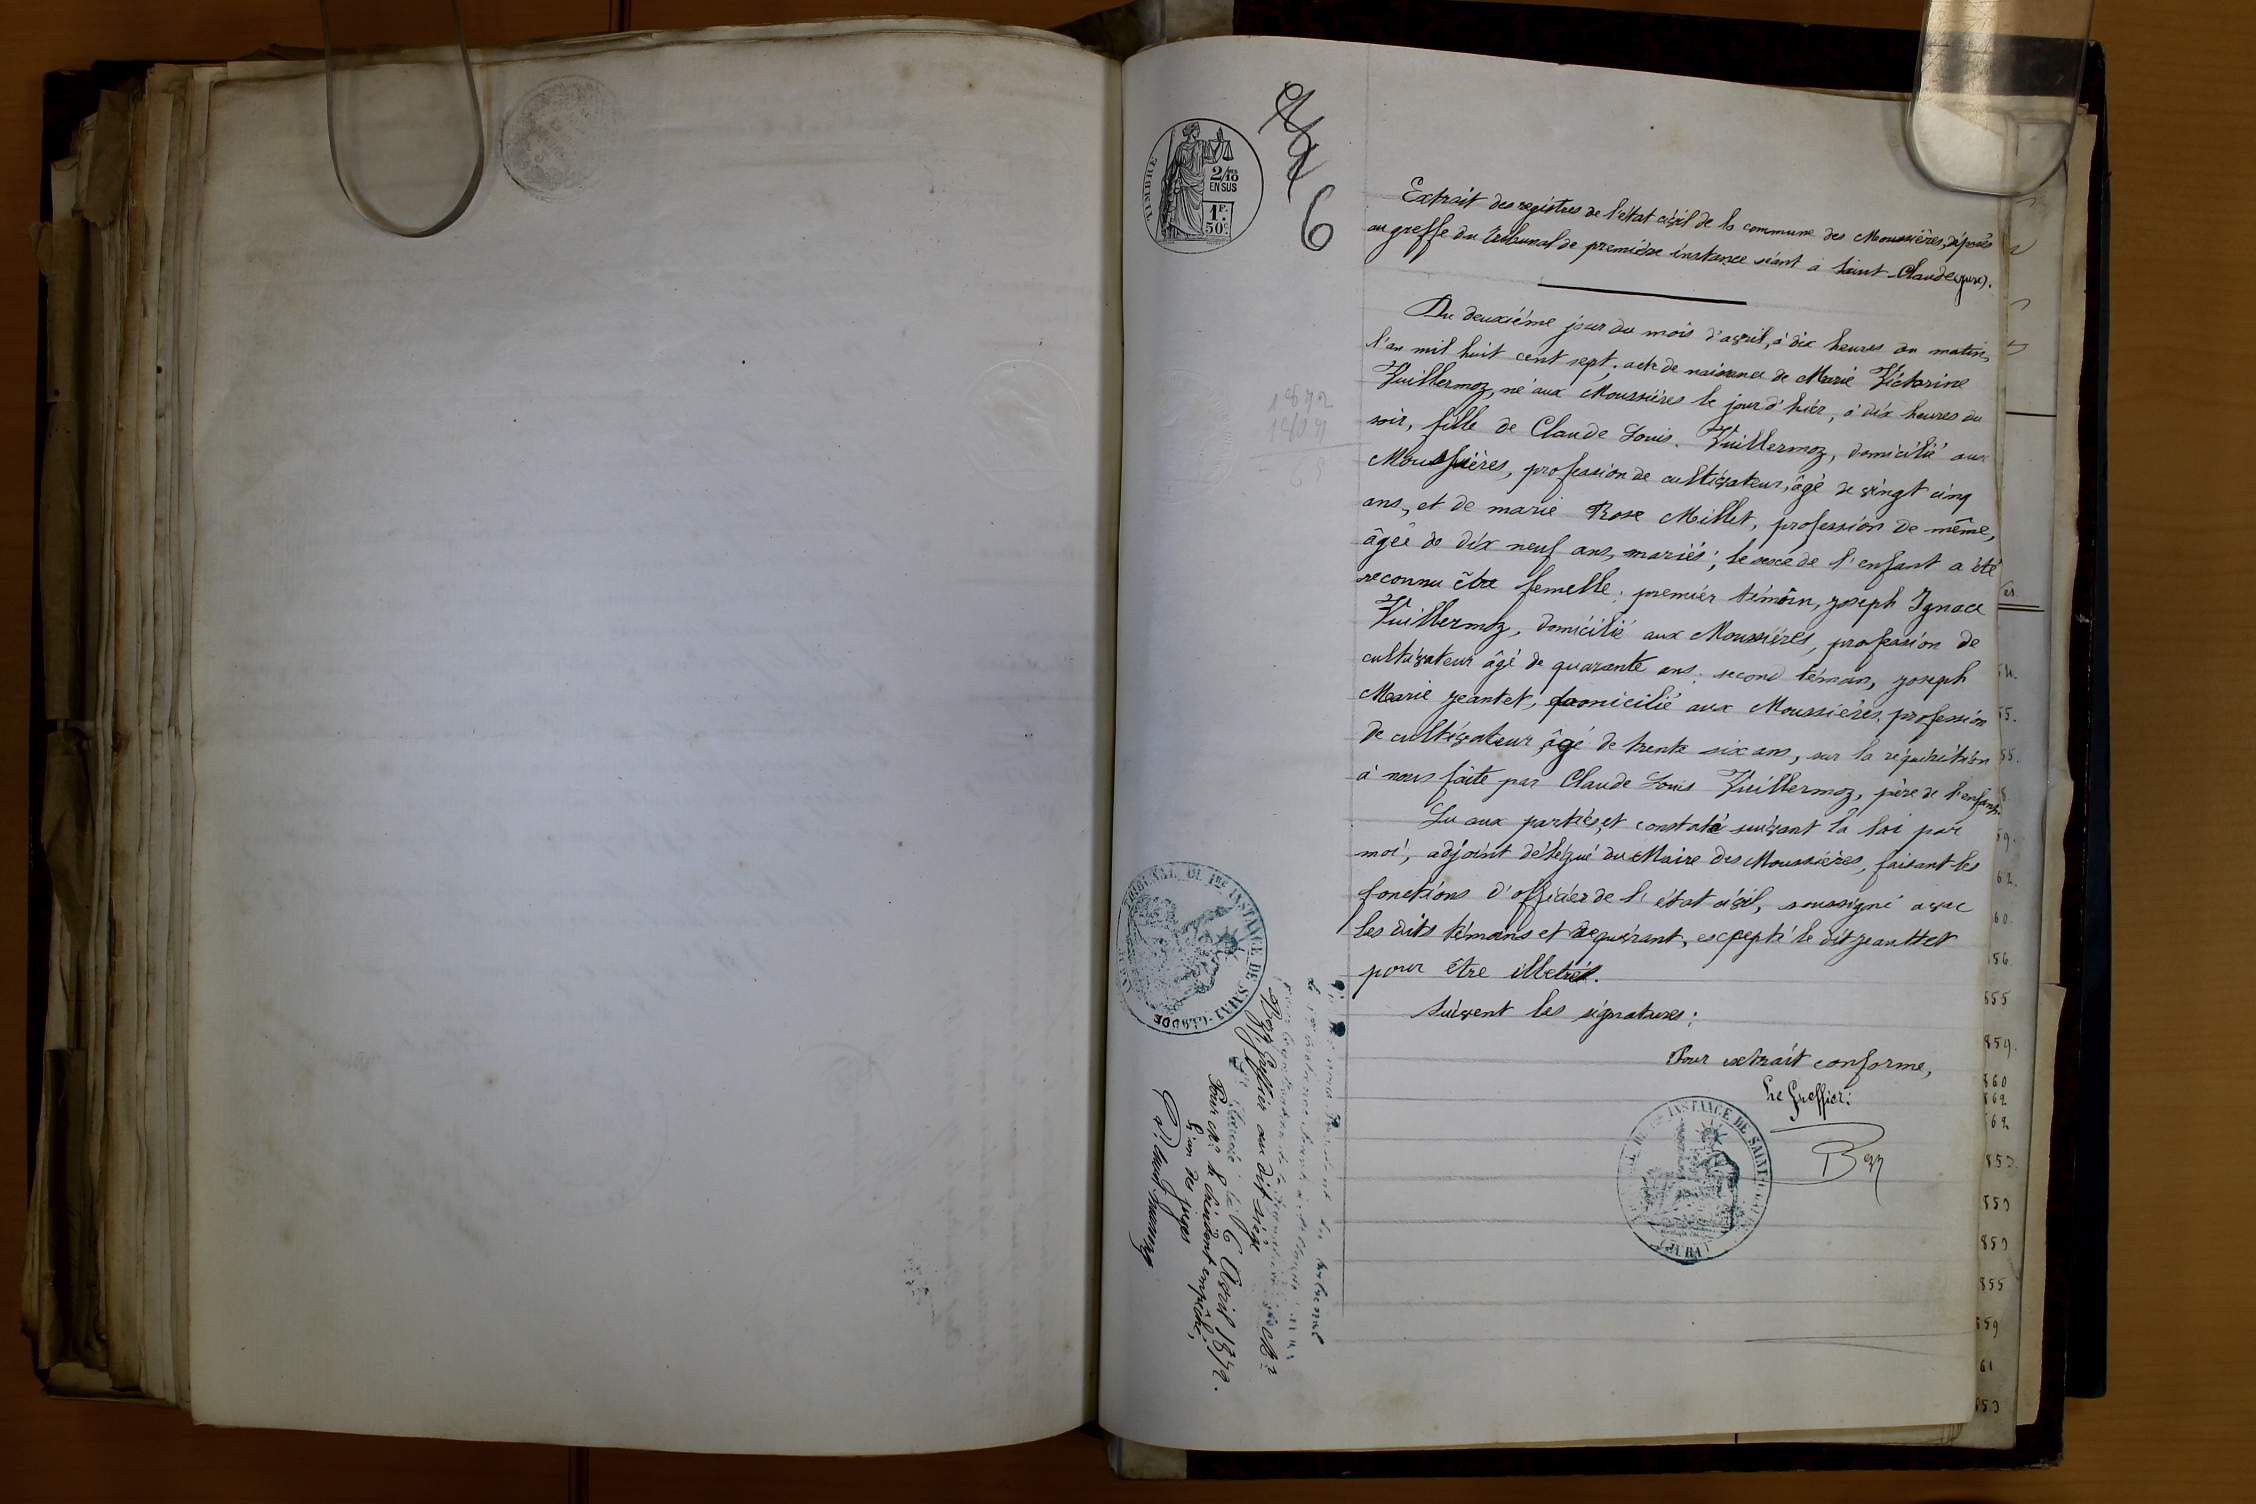 TIMBRE
2/10 EN SUS
1F. 50c.
6
Extrait des registres de l'état civil de la commune des Moussières, déposés
au greffe du tribunal de première instance séant à Saint-Claude (Jura).
Du deuxième jour du mois d'avril, à dix heures du matin,
l'an mil huit cent sept, acte de naissance de Marie Victorine
Vuillermoz, né aux Moussières le jour d'hier, à dix heures du
soir, fille de Claude Louis Vuillermoz, domicilié aux
Moussières, profession de cultivateur, âgé de vingt cinq
ans, et de marie Rose Millet, profession de même,
âgée de dix neuf ans, mariés; le sexe de l'enfant a été
reconnu être femelle; premier témoin, joseph Ignace
Vuillermoz, domicilié aux Moussières, profession de
cultivateur âgé de quarante ans; second témoin, joseph
Marie jeantet, domicilié aux Moussières, profession
de cultivateur, âgé de trente six ans, sur la réquisition
à nous faite par Claude Louis Vuillermoz, père de l'enfant.
Lu aux parties, et constaté suivant la loi par
moi, adjoint délégué du Maire des Moussières, faisant les
fonctions d'officier de l'état civil, soussigné avec
les dits témoins et requérant, excepté le dit jeanttet
pour être illetré.
Suivent les signatures:
Pour extrait conforme,
Le Greffier:
INSTANCE DE SAINT-CLAUDE
(JURA)
TRIBUNAL DE 1re INSTANCE DE SAINT-CLAUDE
Président du tribunal
de la signature de Mr
greffier au dit siège
St Claude, le 6 Avril 1872.
Pour Mr le Président empêché,
L'un des juges
55.
59.
62.
60
56
855
859.
860
862
62
853
853
853
855
859
61
853